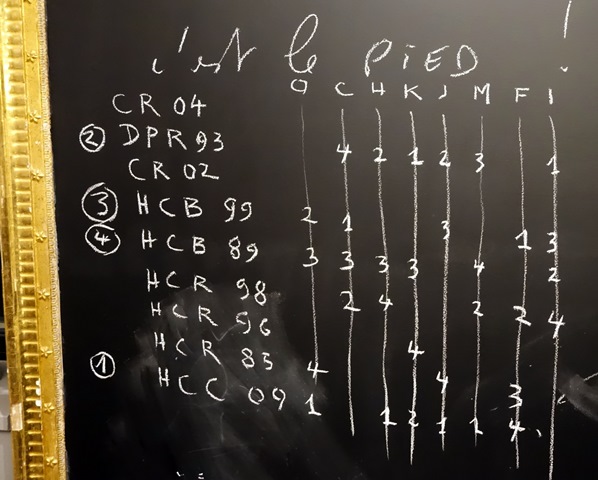 c'est le PiED !
O C H K J M F I
CR 04
② DPR 93 4 2 1 2 3 1
CR 02
③ HCB 99 2 1 3 1 3
④ HCB 89 3 3 3 3 4 2
HCR 98 2 4 2 2 4
HCR 96 4
HCR 83 4 4 3
① HCC 09 1 1 2 1 1 4